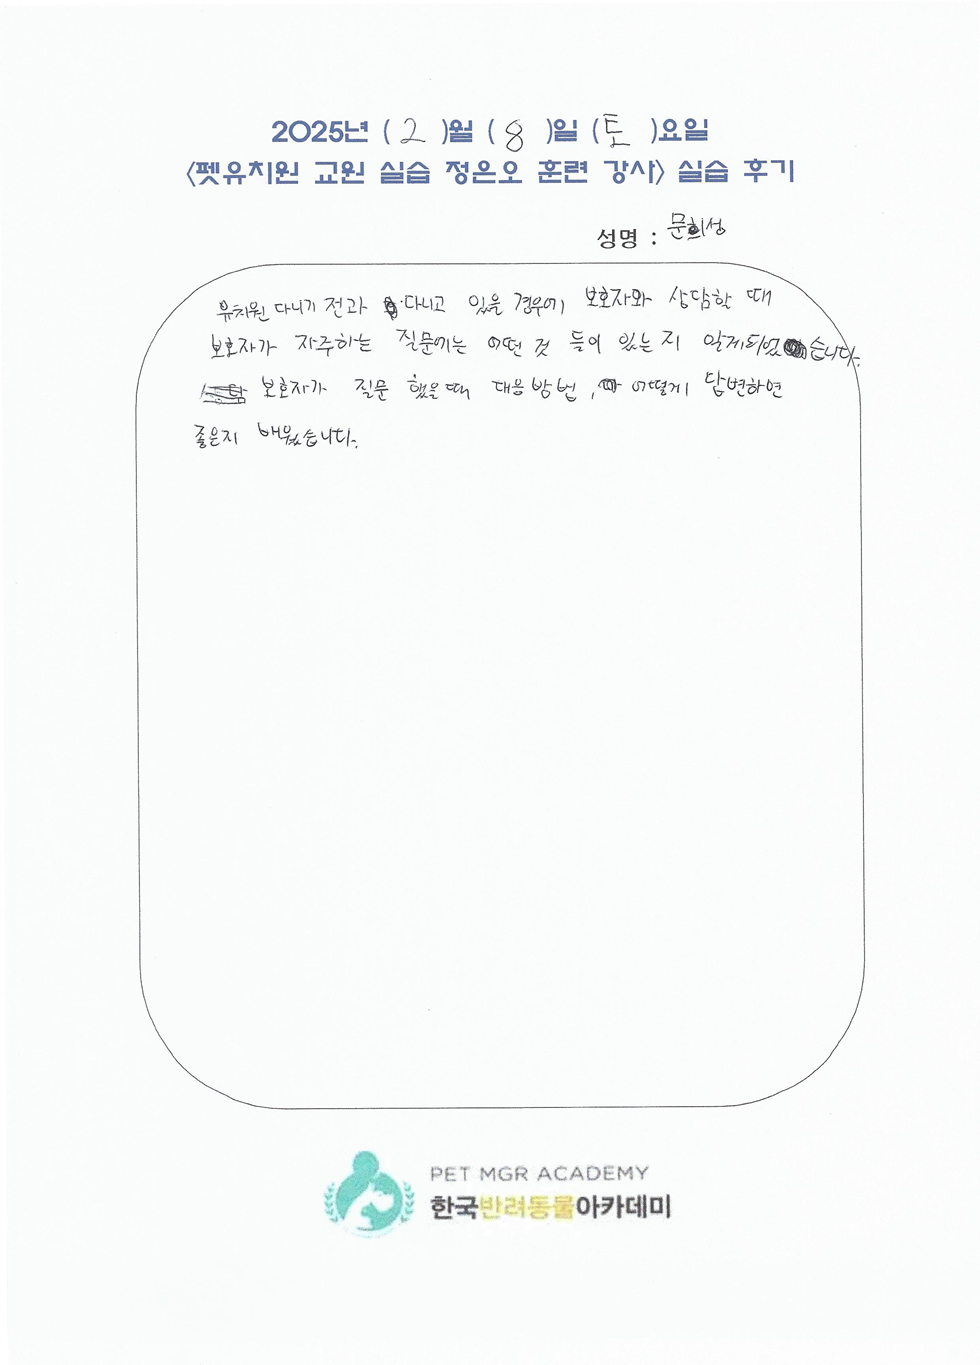 2025년 ( 2 )월 ( 8 )일 (토 )요일
<펫유치원 교원 실습 정은오 훈련 강사> 실습 후기
성명 : 문희성
유치원 다니기 전과 다니고 있을 경우에 보호자와 상담할 때
보호자가 자주하는 질문에는 어떤 것 들이 있는 지 알게되었습니다.
보호자가 질문 했을때 대응방법, 어떻게 답변하면
좋은지 배웠습니다.
PET MGR ACADEMY
한국반려동물아카데미